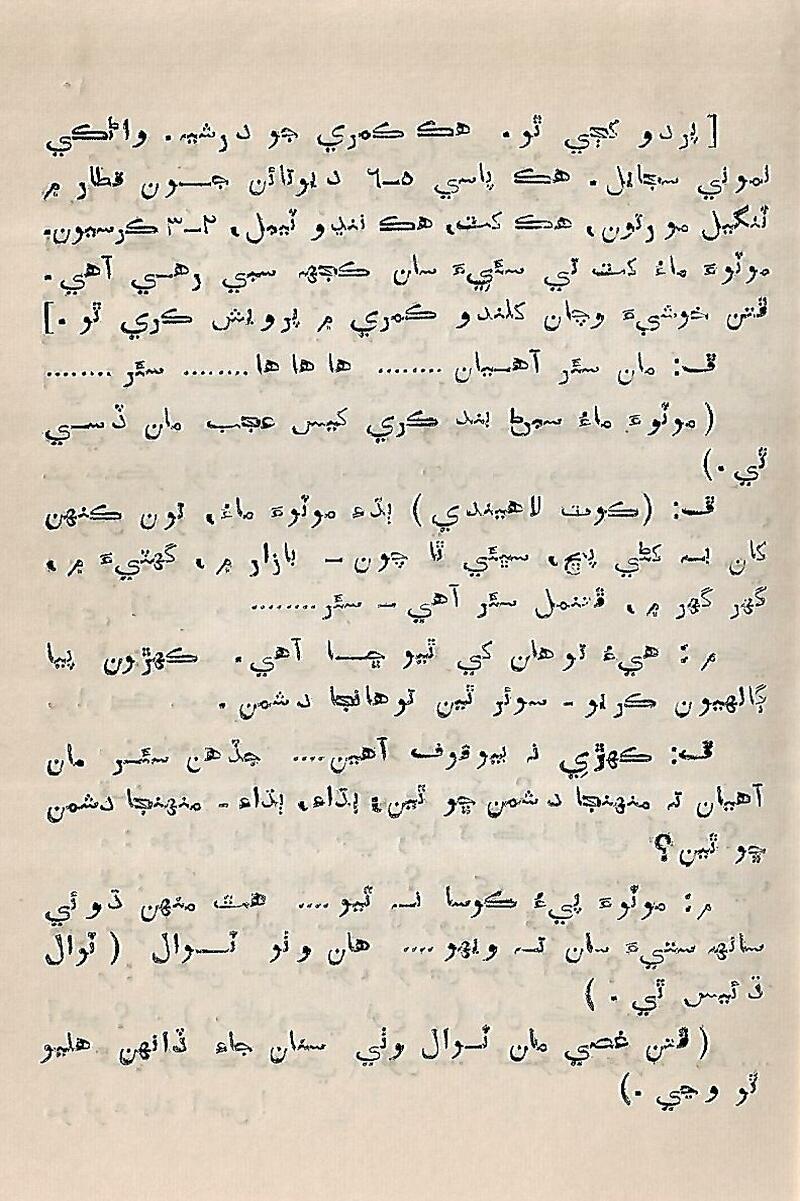 [ پردو کڄي ٿو. هڪ ڪمري جو درشيہ. واڻڪي
نموني سڄايل. هڪ پاسي ٥-٦ ديوتائن جــون قطار ۾
ٽنگيل مورتون، هڪ کٽ، هڪ ننڍو ٽيبل، ٢-٣ ڪرسيون.
موٽوءَ ماءُ کٽ تي سئيءَ سان ڪجهہ سبي رهــي آهي.
ڦتن خوشيءَ وچان کلندو ڪمري ۾ پرويش ڪري ٿو.]
ڦ: مان سٿر آهــيان ........ ها ها ها ........ سٿر ........
( موٽوءَ ماءُ سبڻ بند ڪري کيس عجب مان ڏســي
ٿي .)
ڦ: (ڪوٽ لاهيندي) ٻڌءِ موٽوءَ ماءُ، تون ڪنهن
کان بہ کڻي پڇ، سڀئي ٿا چون - بازار ۾، گهٽيءَ ۾،
گهر گهر ۾، ڦتنمل سٿر آهي - سٿر ........
م: هيءُ توهان کي ٿيو ڇــا آهي. ڪهڙيون پيا
ڳالهيون ڪريو - سوئر ٿين توهانجا دشمن .
ڦ: ڪهڙي نہ بيوقوف آهين .... جڏهن سٿــر مان
آهيان تہ منهنجا دشمن ڇو ٿين؛ ٻڌاءِ، ٻڌاءِ - منهنجا دشمن
ڇو ٿين؟
م: موٽوءَ پيءُ ڪوسا نہ ٿيو .... هٿ منهن ڌوئي
سانهہ سٺيءَ سان تہ ويهو .... هان وٺو ٽــوال ( ٽوال
ڏئيس ٿي . )
( ڦتن غصي مان ٽــوال وٺي سنان جاءِ ڏانهن هليو
ٿو وڃي .)